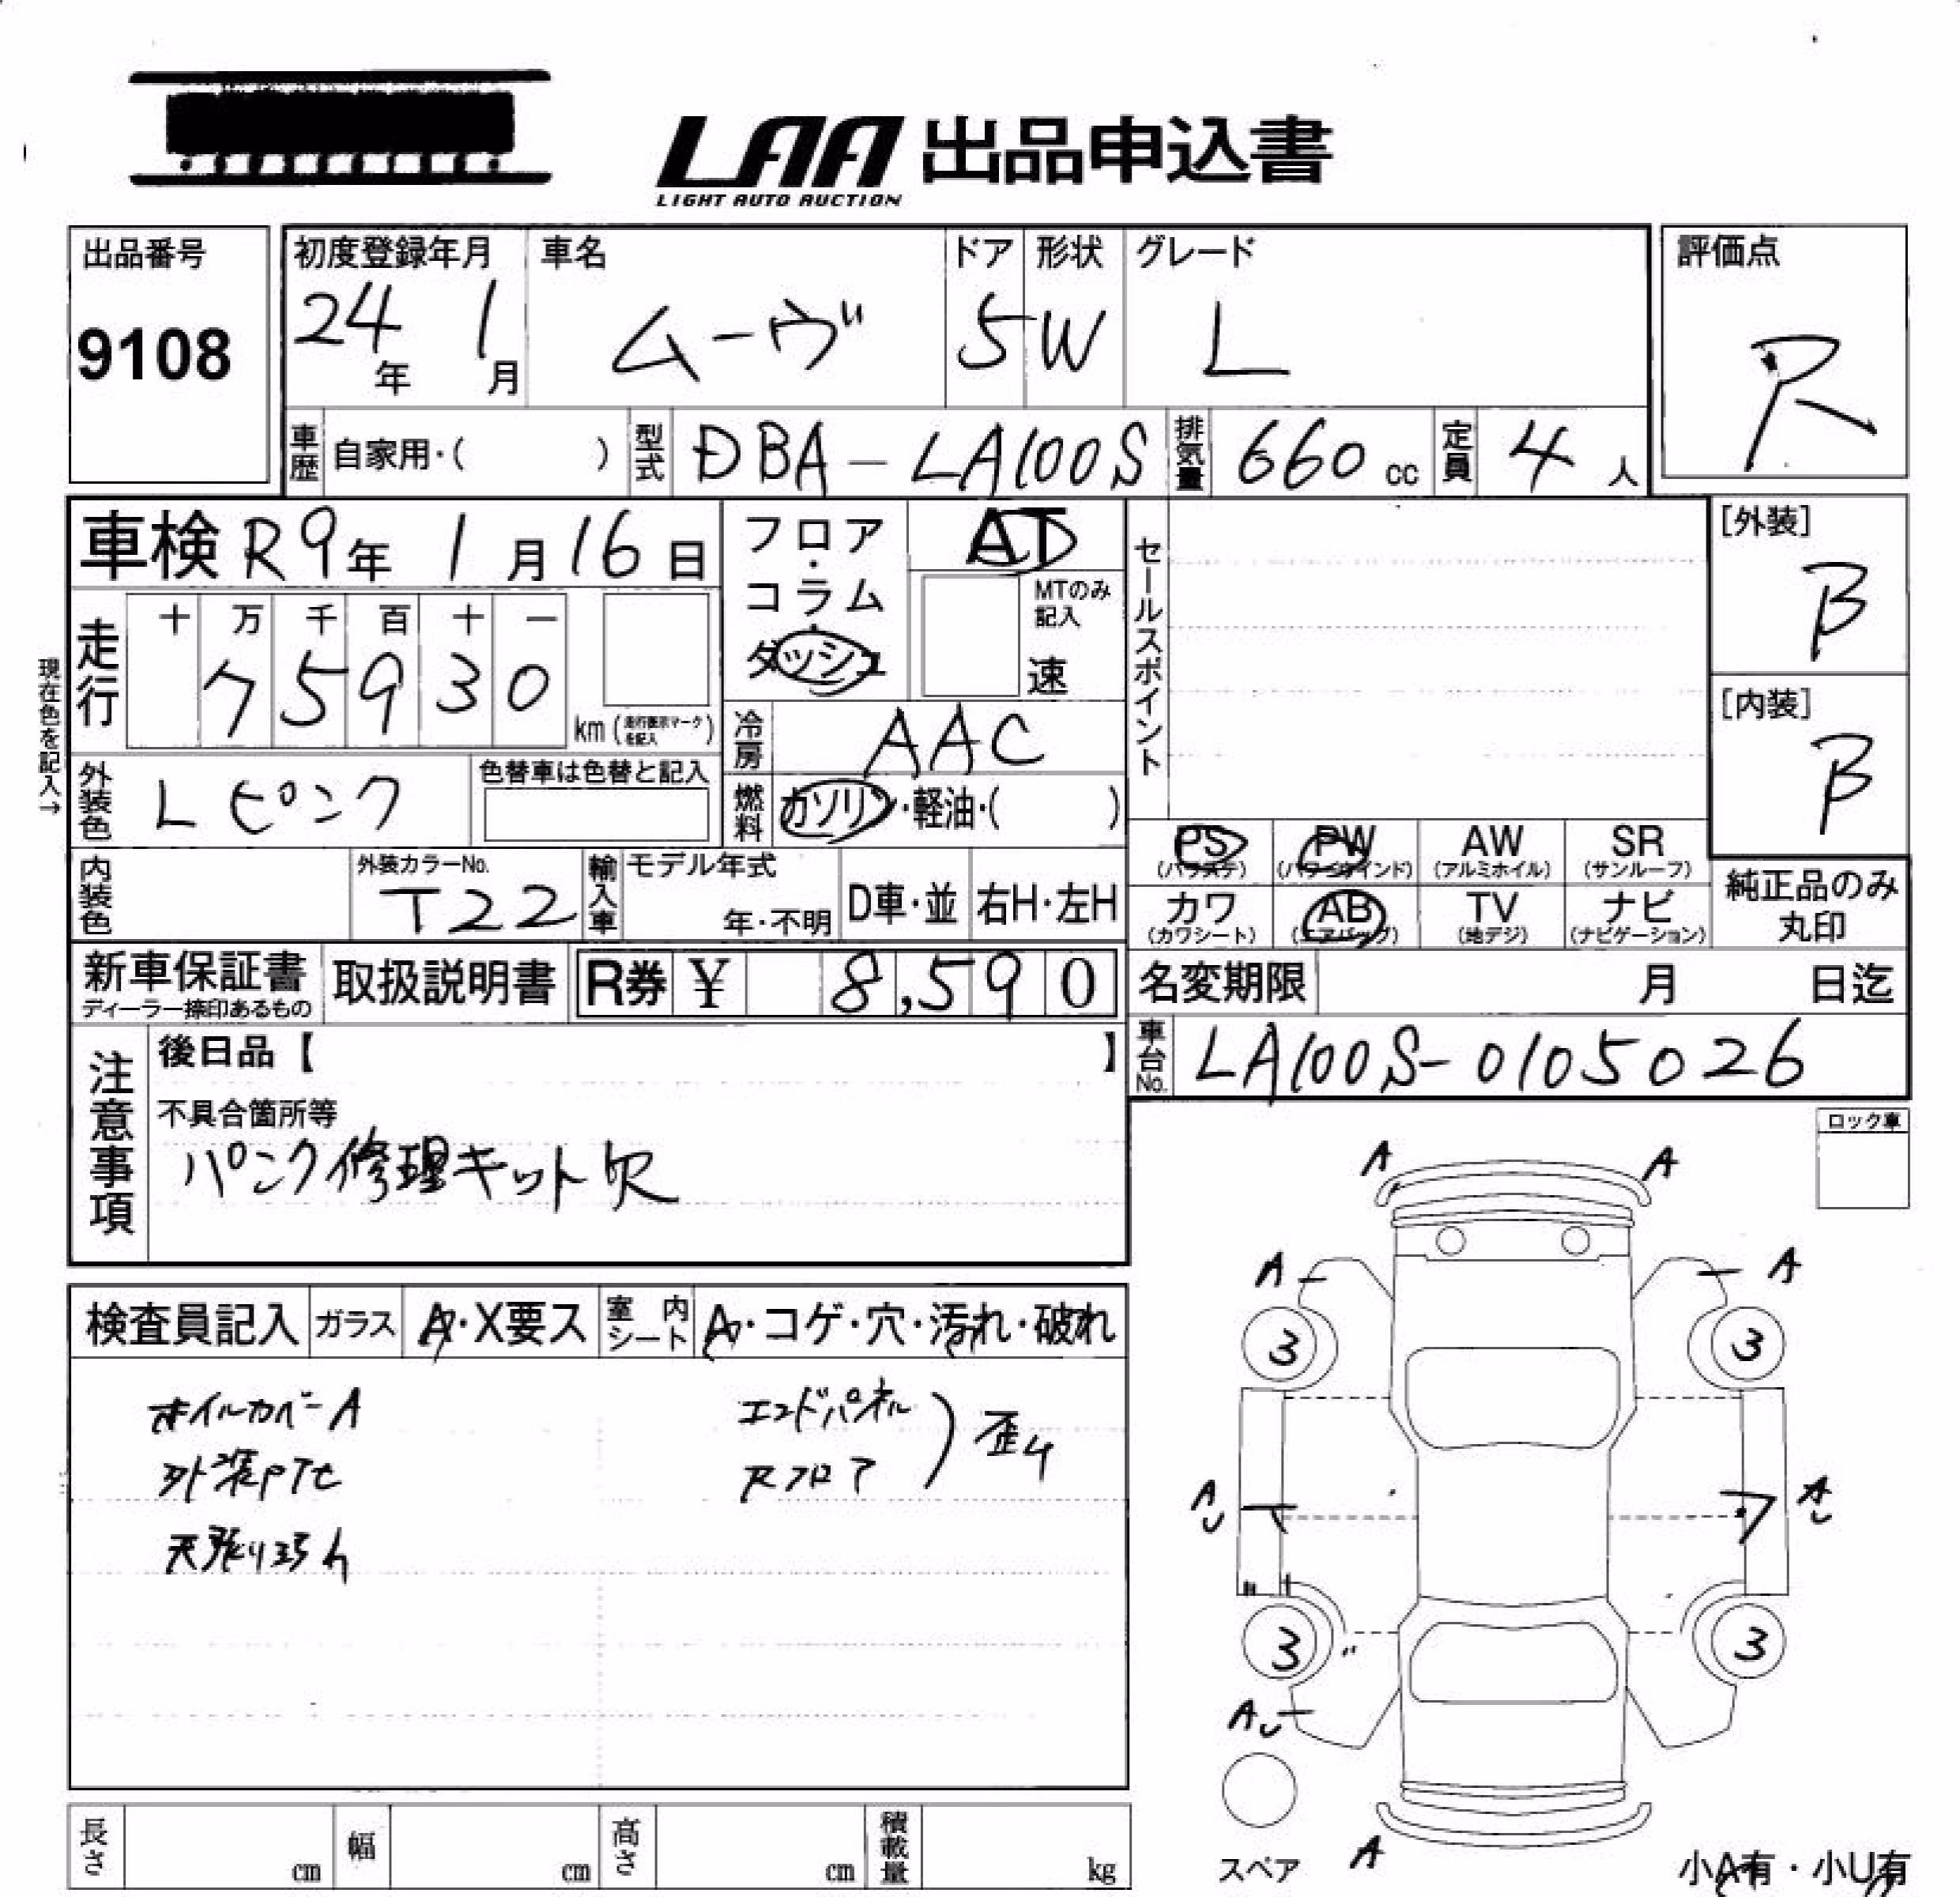 LAA 出品申込書
LIGHT AUTO AUCTION
出品番号
9108
初度登録年月
24年 1月
車名
ムーヴ
ドア
5
形状
W
グレード
L
評価点
R
車歴 自家用・( )
型式 DBA-LA100S
排気量 660 cc
定員 4 人
車検 R9年 1月 16日
走行
十 万 千 百 十 一
7 5 9 3 0
km (走行表示マークを記入)
現在色を記入→
フロア・コラム・ダッシュ
AT
MTのみ記入
速
冷房 AAC
燃料 ガソリン・軽油・( )
セールスポイント
[外装]
B
[内装]
B
外装色 Lピンク
色替車は色替と記入
内装色
外装カラーNo.
T22
輸入車
モデル年式
年・不明
D車・並
右H・左H
PS (パワステ)
PW (パワーウインド)
AW (アルミホイル)
SR (サンルーフ)
カワ (カワシート)
AB (エアバッグ)
TV (地デジ)
ナビ (ナビゲーション)
純正品のみ
丸印
新車保証書
ディーラー捺印あるもの
取扱説明書
R券 ¥ 8,590
名変期限 月 日迄
車台No. LA100S-0105026
注意事項
後日品【 】
不具合箇所等
パンク修理キット欠
ロック車
検査員記入
ガラス A・X要ス
室内シート A・コゲ・穴・汚れ・破れ
ホイルカバーA
外装PTセ
天張り汚れ
エンドパネル
Rフロア
歪ム
A A
A A
3 3
AU AU
3 3
AU
A
スペア
小A有・小U有
長さ cm
幅 cm
高さ cm
積載量 kg